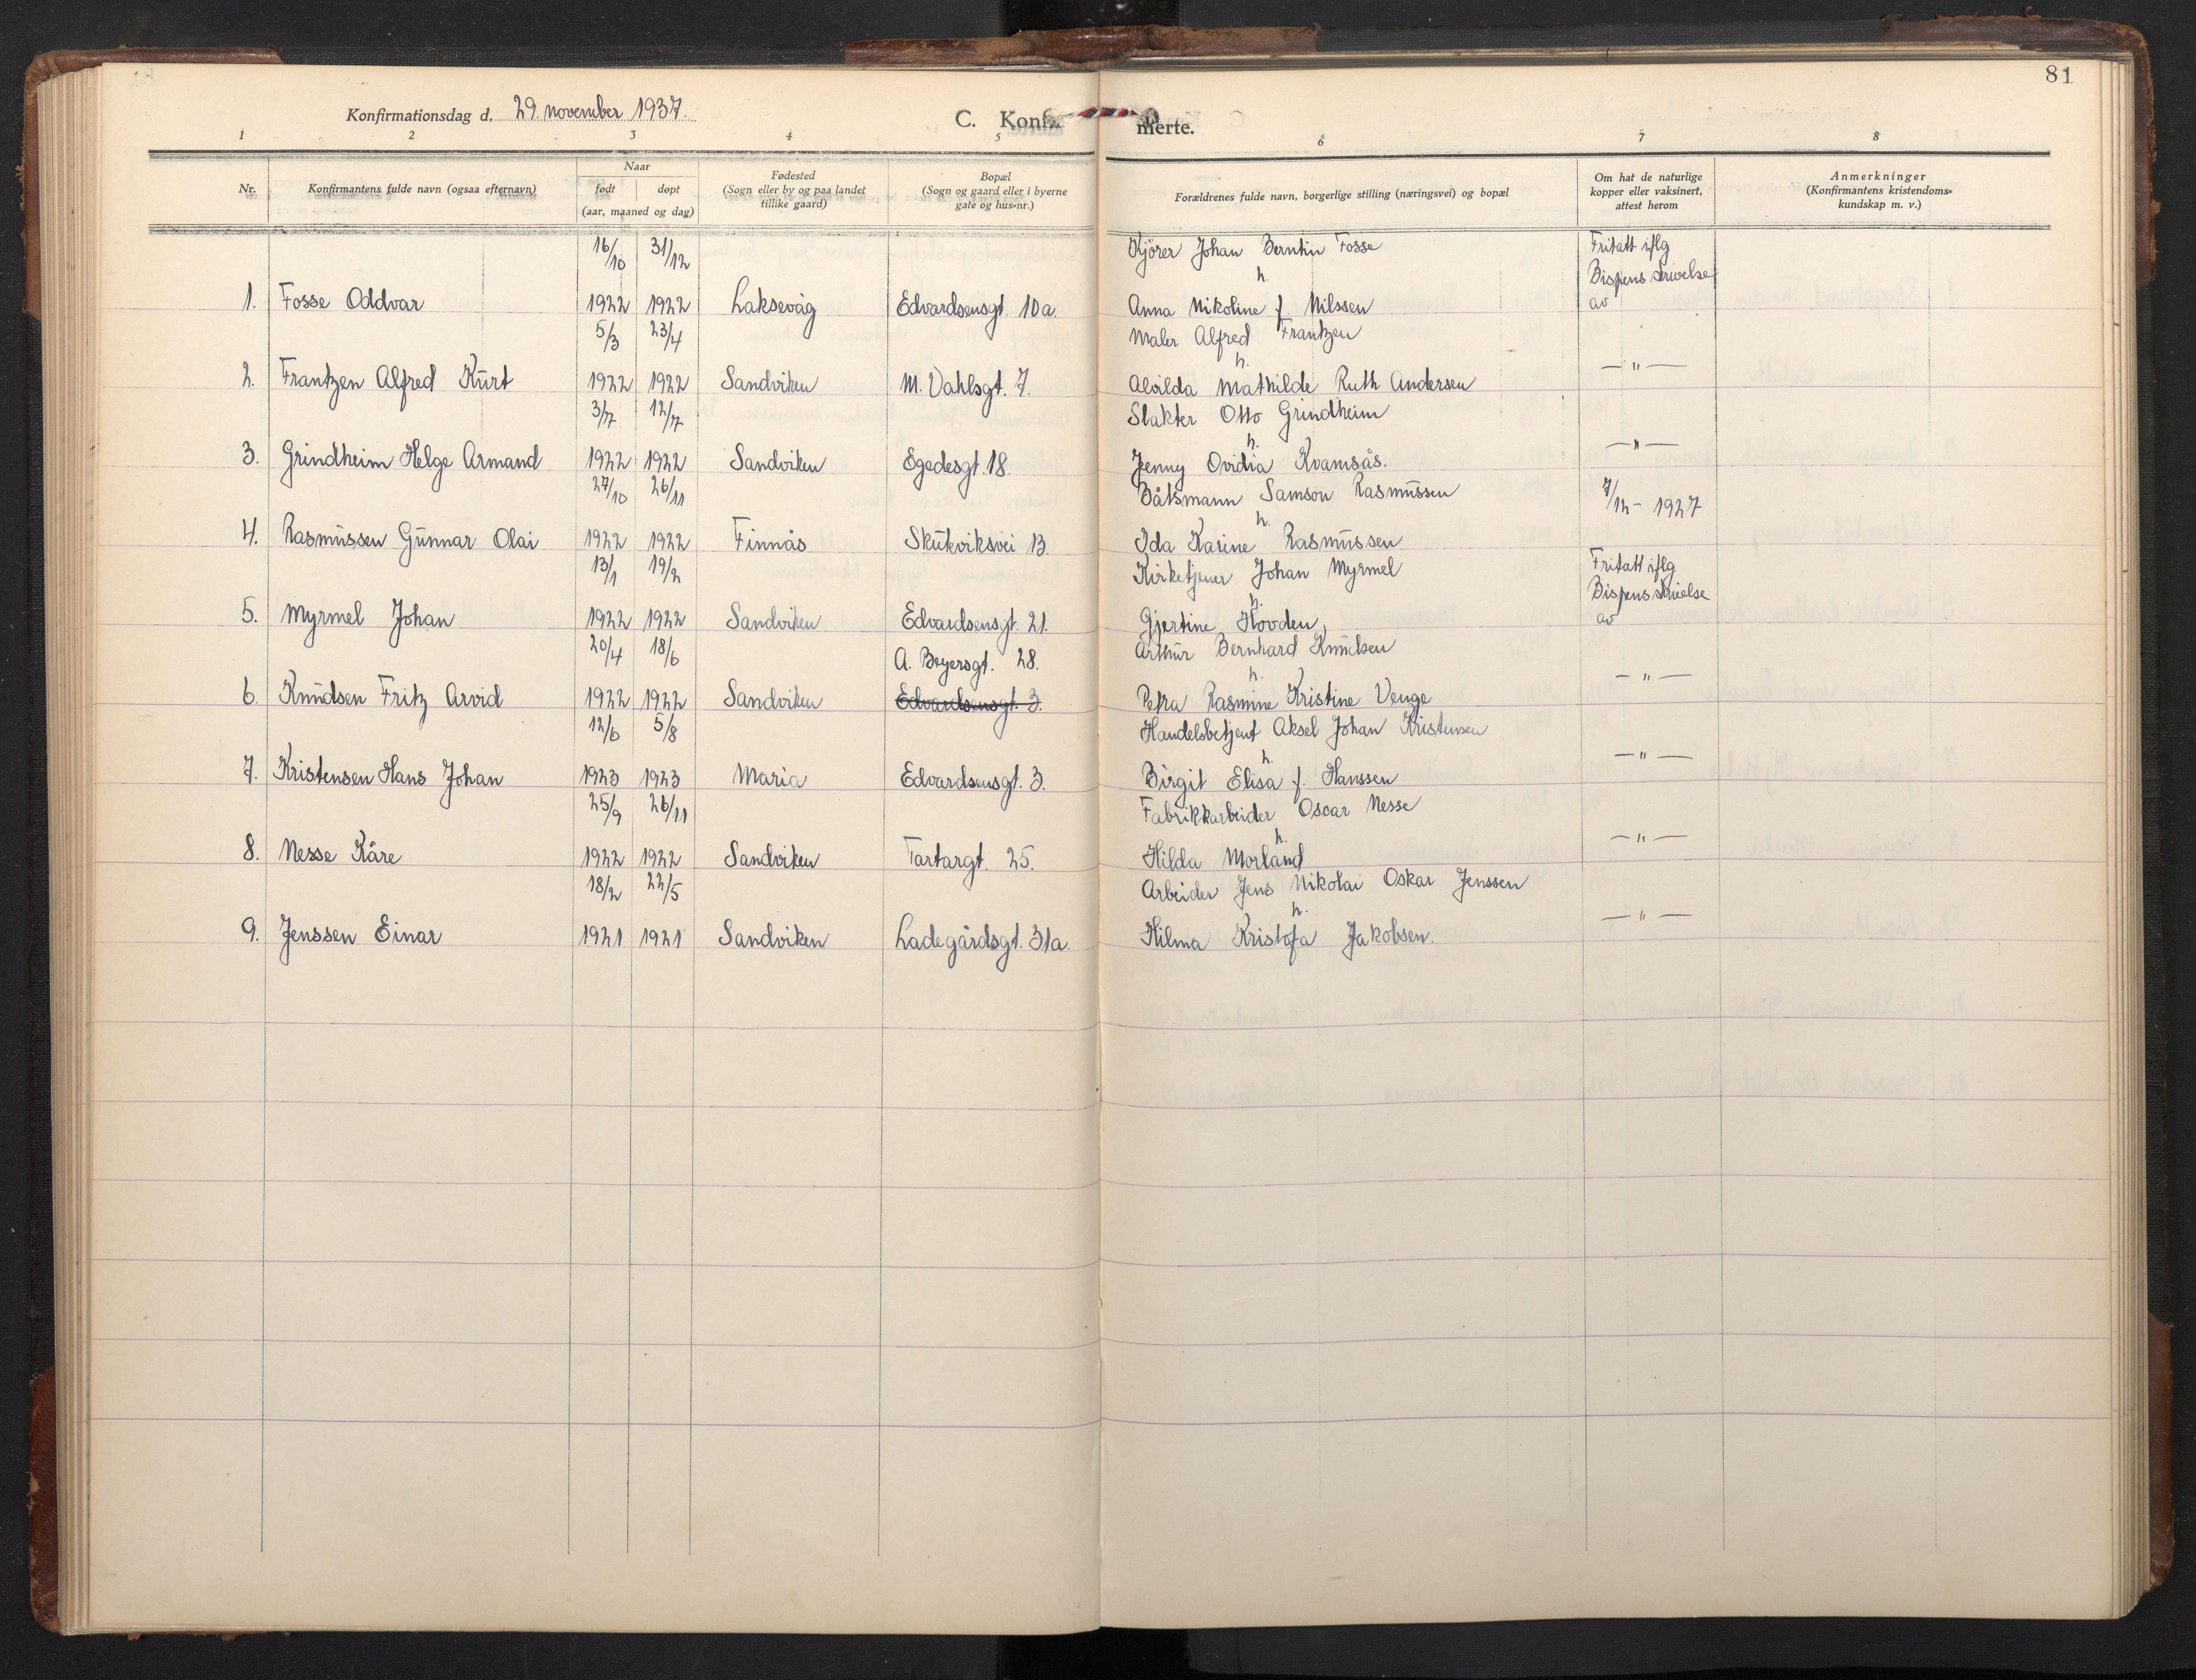 81
Konfirmationsdag d. 29. november 1937.
C. Konfir
merte.
1 2 3 4 5 6 7 8
Nr.
Konfirmantens fulde navn (ogsaa efternavn)
Naar
født døpt
(aar, maaned og dag)
Fødested
(Sogn eller by og paa landet
tillike gaard)
Bopæl
(Sogn og gaard eller i byerne
gate og hus-nr.)
Forældrenes fulde navn, borgerlige stilling (næringsvei) og bopæl
Om hat de naturlige
kopper eller vaksinert,
attest herom
Anmerkninger
(Konfirmantens kristendoms-
kundskap m. v.)
16/10 31/12 Kjörer Johan Berntin Fosse Fritatt iflg
h. Bispens skrivelse
1. Fosse Oddvar 1922 1922 Laksevåg Edvardsensgt. 10a. Anna Nikoline f. Nilssen av
5/3 23/4 Maler Alfred Frantzen
h.
2. Frantzen Alfred Kurt 1922 1922 Sandviken M. Vahlsgt. 7. Alvilda Mathilde Ruth Andersen — " —
3/7 12/7 Slakter Otto Grindheim
h.
3. Grindheim Helge Armand 1922 1922 Sandviken Egedesgt. 18. Jenny Ovidia Kvamsås. — " —
27/10 26/11 Båtsmann Samson Rasmussen 7/12 - 1927
h.
4. Rasmussen Gunnar Olai 1922 1922 Finnås Skuteviksvei 13. Ida Karine Rasmussen
13/1 19/2 Kirketjener Johan Myrmel Fritatt iflg
h. Bispens skrivelse
5. Myrmel Johan 1922 1922 Sandviken Edvardsensgt. 21. Gjertine Hovden, av
20/4 18/6 A. Beyersgt. 28. Arthur Bernhard Knudsen
h.
6. Knudsen Fritz Arvid 1922 1922 Sandviken Edvardsensgt. 3. Petra Rasmine Kristine Venge — " —
12/6 5/8 Handelsbetjent Aksel Johan Kristensen
h.
7. Kristensen Hans Johan 1923 1923 Maria Edvardsensgt. 3. Birgit Elisa f. Hanssen — " —
25/9 26/11 Fabrikkarbeider Oscar Nesse
h.
8. Nesse Kåre 1922 1922 Sandviken Tartargt. 25. Hilda Morland — " —
18/2 22/5 Arbeider Jens Nikolai Oskar Jenssen
h.
9. Jenssen Einar 1921 1921 Sandviken Ladegårdsgt. 31a. Hilma Kristofa Jakobsen. — " —